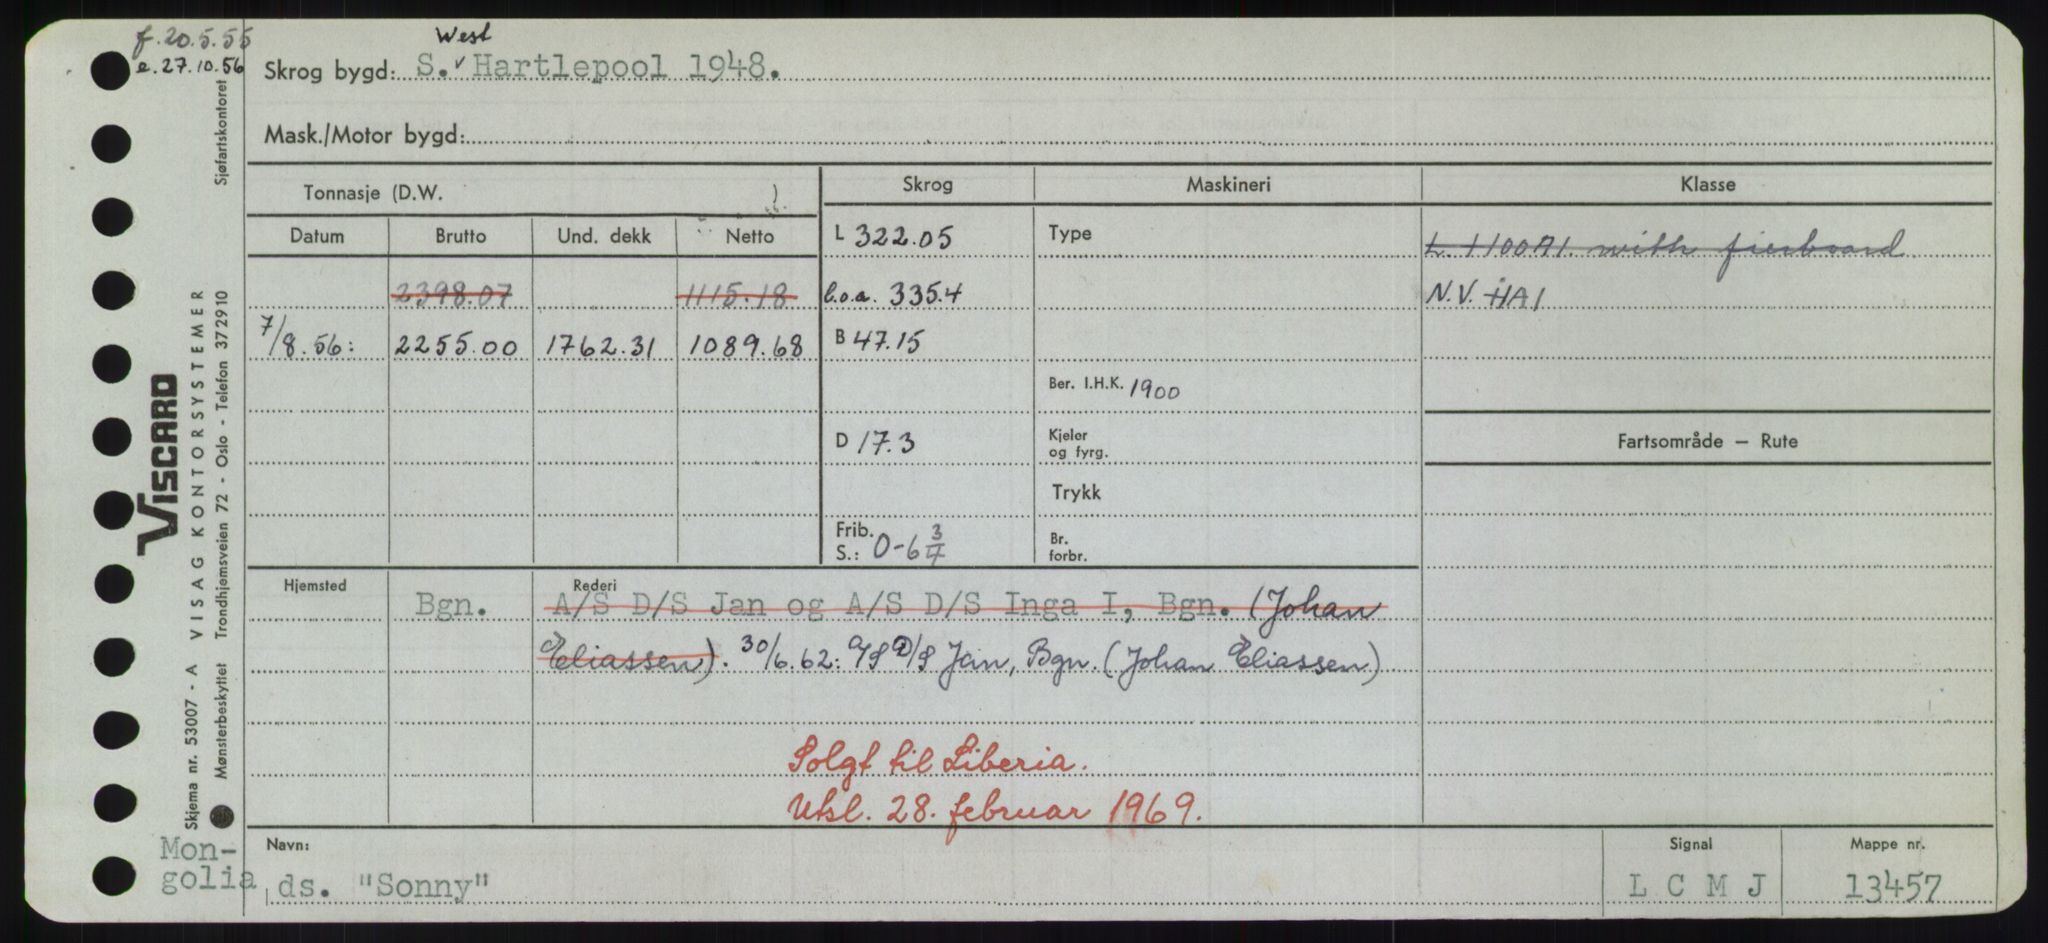 f. 20.5.55
e. 27.10.56
Skrog bygd: S. West Hartlepool 1948.
Mask./Motor bygd:
Tonnasje (D.W. )
Skrog
Maskineri
Klasse
Datum
Brutto
Und. dekk
Netto
2398.07
1115.18
7/8.56:
2255.00
1762.31
1089.68
L 322.05
l.o.a. 335.4
B 47.15
D 17.3
Frib.
S.: 0-6 3/7
Type
Ber. I.H.K. 1900
Kjeler
og fyrg.
Trykk
Br.
forbr.
with
N.V.
Fartsområde – Rute
Hjemsted
Bgn.
Rederi
A/S D/S Jan og A/S D/S Inga I, Bgn. (Johan
Eliassen). 30/6.62: A/S D/S Jan, Bgn. (Johan Eliassen)
Solgt til Liberia.
Utsl. 28. februar 1969.
Navn:
ds. "Sonny"
Signal
L C M J
Mappe nr.
13457
Mon-
golia
VISCARD
Skjema nr. 53007 - A VISAG KONTORSYSTEMER
Mønsterbeskyttet Trondhjemsveien 72 - Oslo - Telefon 372910 Sjøfartskontoret